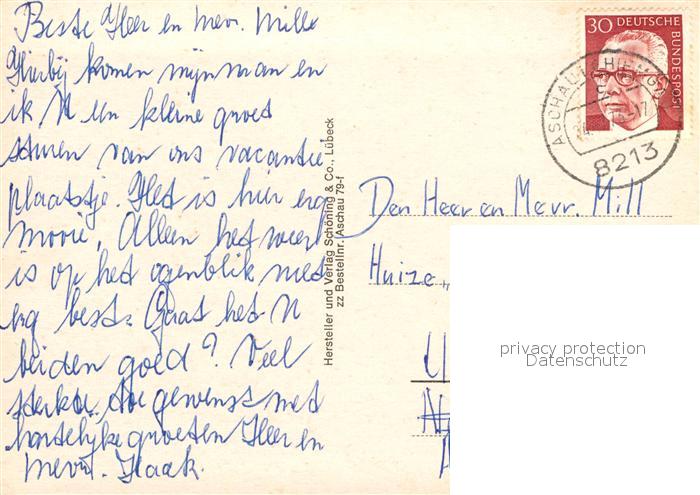 Beste Heer en mevr. Mill
Hierbij komen mijn man en
ik U een kleine groet
sturen van ons vacantie
plaatsje. Het is hier erg
mooie, Alleen het weer
is op het ogenblik niet
erg best. Gaat het U
beiden goed? Veel
sterkte toegewenst met
hartelijke groeten Heer en
mevr. Haak.
Hersteller und Verlag Schöning & Co., Lübeck
zz Bestellnr. Aschau 79-f
30 DEUTSCHE
BUNDESPOST
ASCHAU I. CHIEMGAU
8213
Den Heer en Mevr. Mill
Huize "
privacy protection
Datenschutz